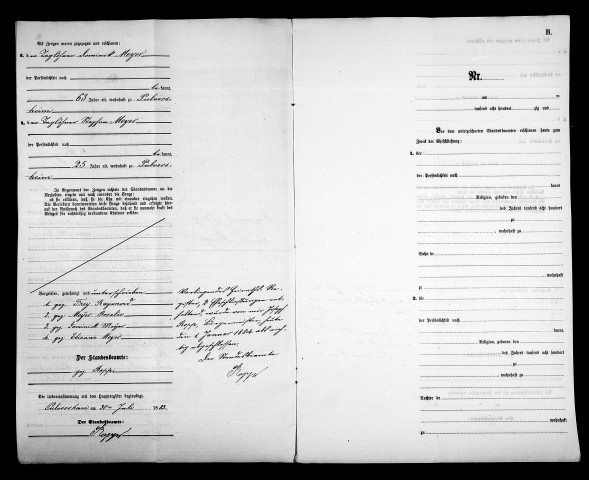 Als Zeugen waren zugezogen und erschienen:
3. der Taglöhner Dominik Meyer
der Persönlichkeit nach
be kannt,
63 Jahre alt, wohnhaft zu Pulvers-
heim
4. der Taglöhner Stephan Meyer
der Persönlichkeit nach
be kannt,
25 Jahre alt, wohnhaft zu Pulvers-
heim
In Gegenwart der Zeugen richtete der Standesbeamte an die
Verlobten einzeln und nach einander die Frage:
ob sie erklären, daß sie die Ehe mit einander eingehen wollen.
Die Verlobten beantworteten diese Frage bejahend und erfolgte hier-
auf der Ausspruch des Standesbeamten, daß er sie nunmehr kraft des
Gesetzes für rechtmäßig verbundene Eheleute erkläre.
Vorgelesen, genehmigt und unterschrieben
1. gez. Frey Raymond
2. gez. Meyer Rosalie
3. gez. Dominik Meyer
4. gez. Etienne Meyer
Der Standesbeamte:
gez. Bopp.
Die Uebereinstimmung mit dem Hauptregister beglaubigt
Pulversheim am 30ten Juli 1883.
Der Standesbeamte:
Vorliegendes Heiraths-Re-
gister, 2 Eheschließungen ent-
haltend wurde von mir Joseph
Bopp, Bürgermeister, heute
den 1 Januar 1884 als rich-
tig abgeschlossen.
Der Standesbeamte
B.
Nr.
am te
tausend acht hundert zig und
Vor dem unterzeichneten Standesbeamten erschienen heute zum
Zweck der Eheschließung:
1. der
der Persönlichkeit nach
kannt,
Religion, geboren den
des Jahres tausend acht hundert
zu
wohnhaft zu
Sohn de
zu
2. die
der Persönlichkeit nach
kannt,
Religion, geboren den
des Jahres tausend acht hundert
zu
wohnhaft zu
Tochter de
wohnhaft
zu